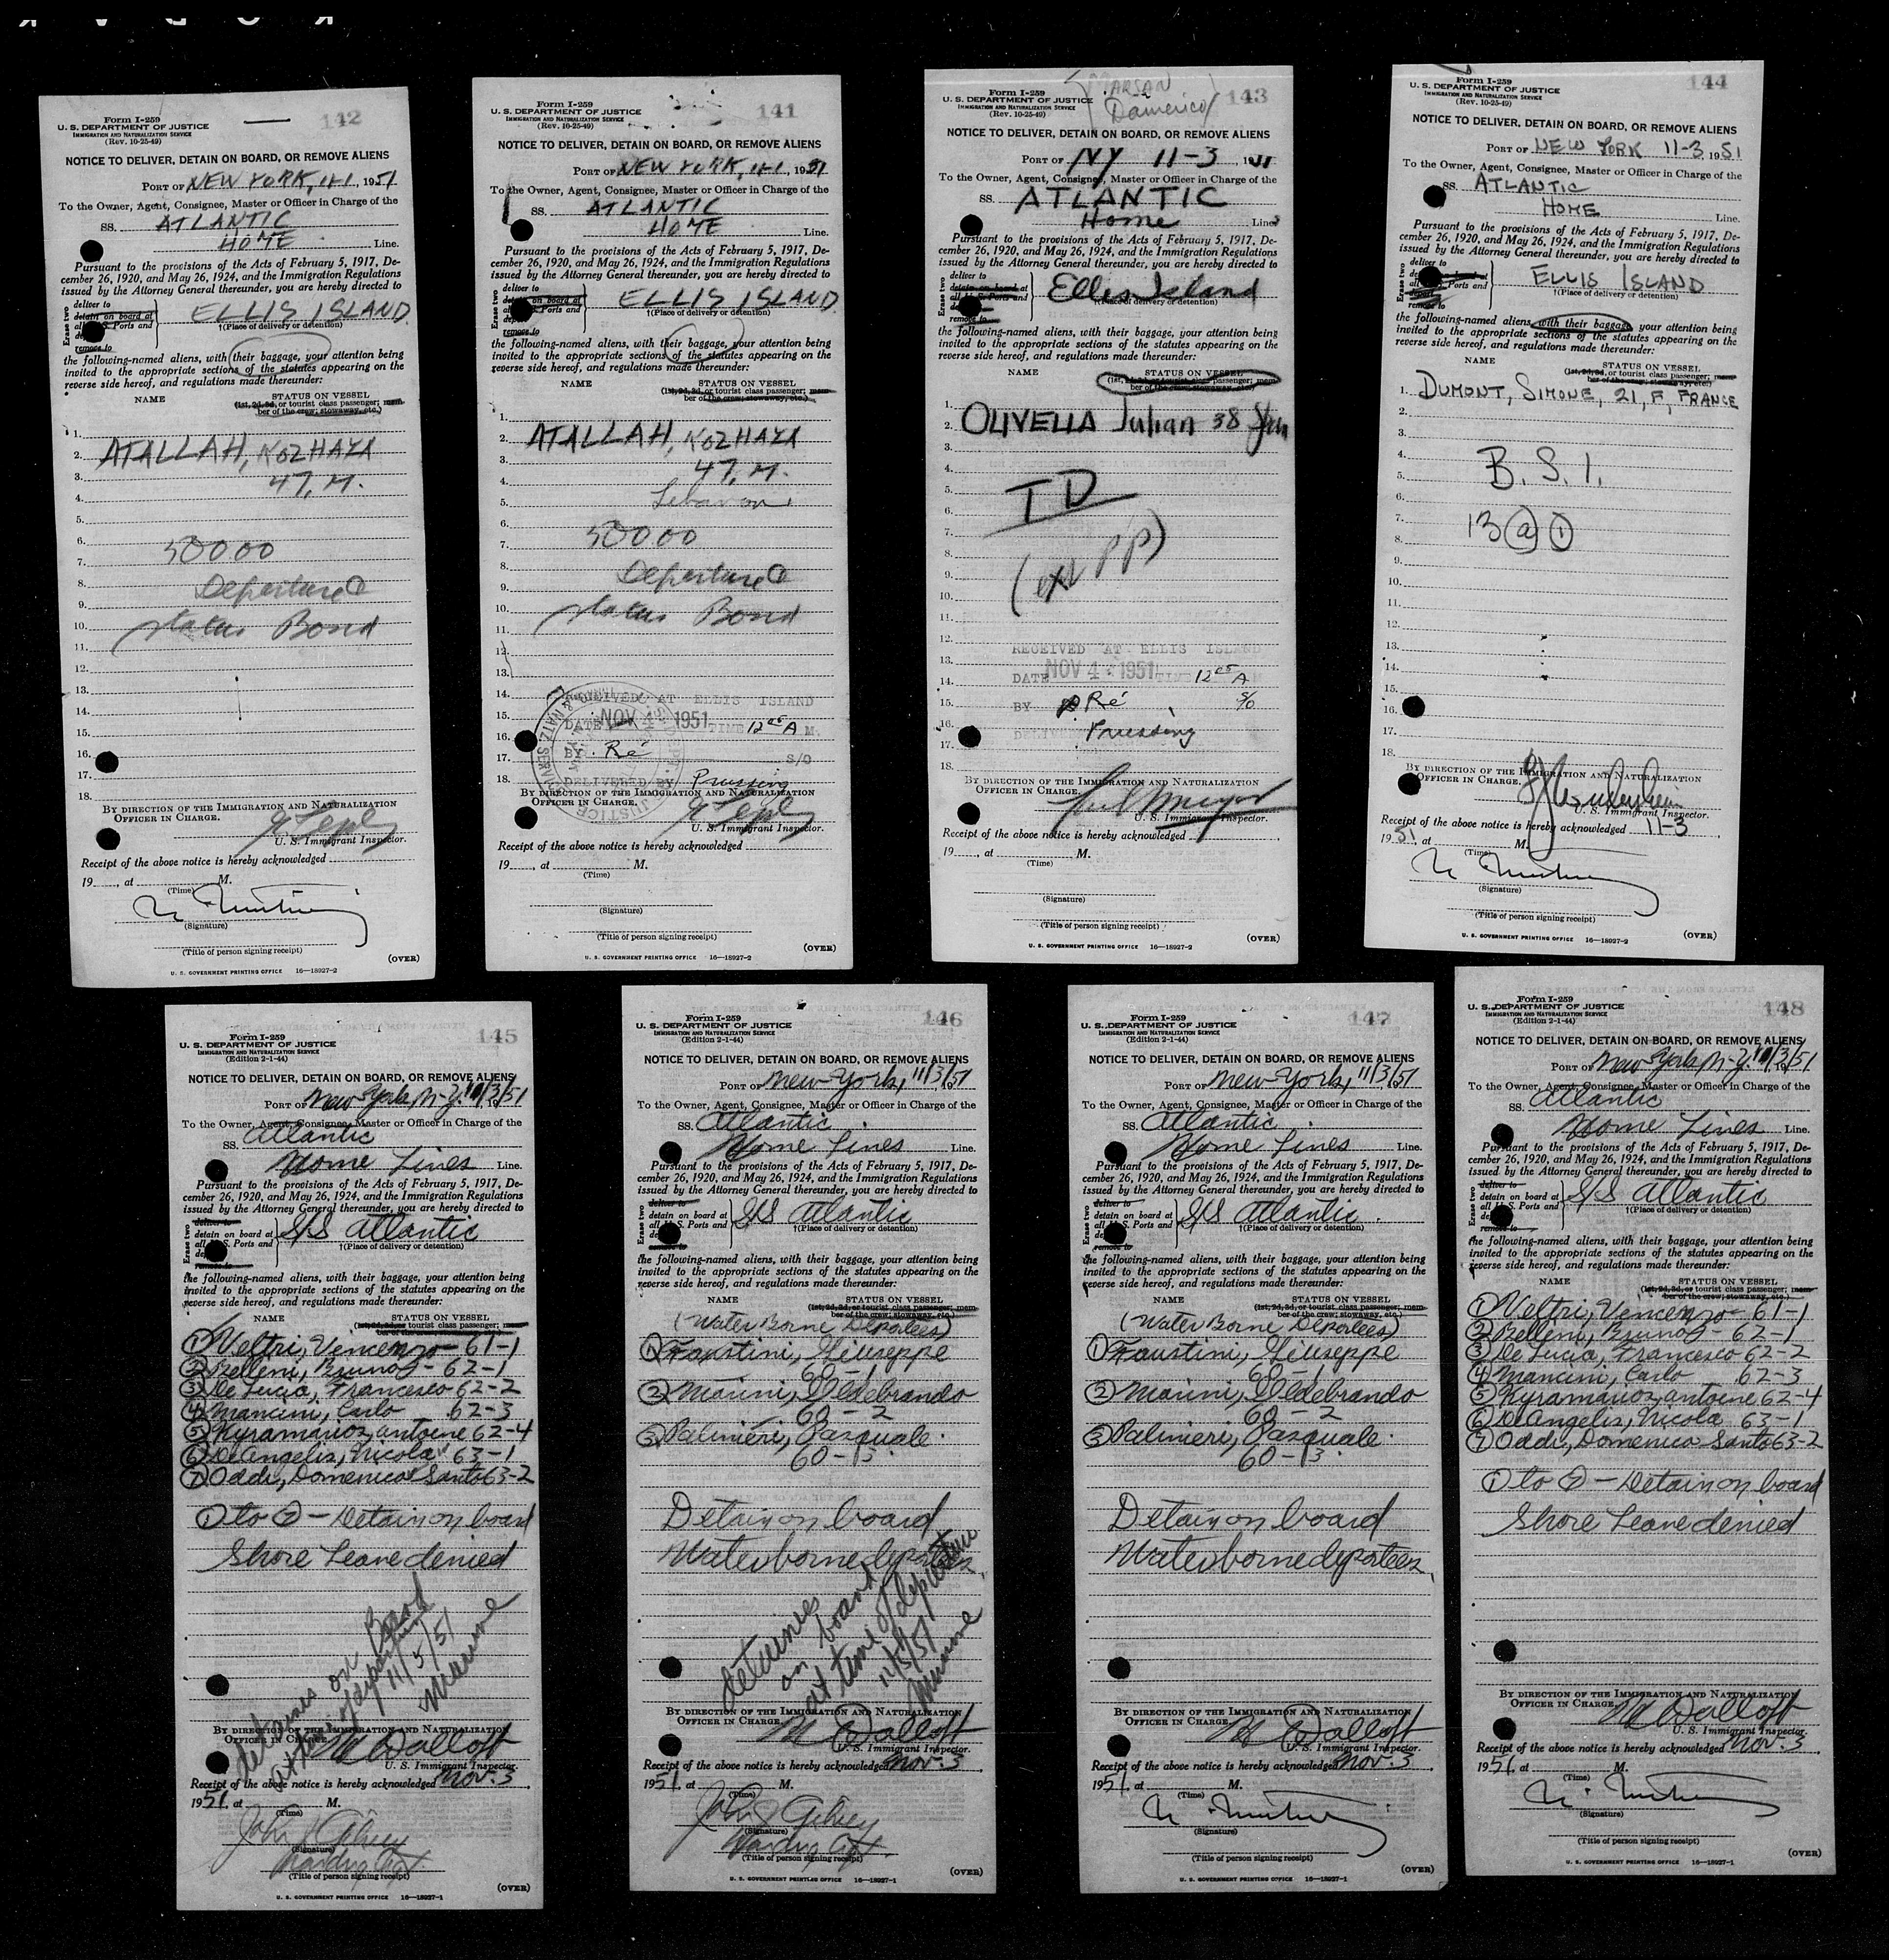 Form I-259
U. S. DEPARTMENT OF JUSTICE
IMMIGRATION AND NATURALIZATION SERVICE
(Rev. 10-25-49)
142
NOTICE TO DELIVER, DETAIN ON BOARD, OR REMOVE ALIENS
PORT OF NEW YORK, 11-1, 1951
To the Owner, Agent, Consignee, Master or Officer in Charge of the
SS. ATLANTIC
HOME Line.
Pursuant to the provisions of the Acts of February 5, 1917, De-
cember 26, 1920, and May 26, 1924, and the Immigration Regulations
issued by the Attorney General thereunder, you are hereby directed to
Erase two
deliver to
detain on board at
all U. S. Ports and
remove to
ELLIS ISLAND
†(Place of delivery or detention)
the following-named aliens, with their baggage, your attention being
invited to the appropriate sections of the statutes appearing on the
reverse side hereof, and regulations made thereunder:
NAME STATUS ON VESSEL
(1st, 2d, 3d, or tourist class passenger; mem-
ber of the crew; stowaway, etc.)
1.
2. ATALLAH, KOZHAYA
3. 47, M.
4.
5.
6. 500.00
7.
8. Departure &
9.
10. status Bond
11.
12.
13.
14.
15.
16.
17.
18.
BY DIRECTION OF THE IMMIGRATION AND NATURALIZATION
OFFICER IN CHARGE.
U. S. Immigrant Inspector.
Receipt of the above notice is hereby acknowledged
19 , at M.
(Time)
(Signature)
(Title of person signing receipt)
(OVER)
U. S. GOVERNMENT PRINTING OFFICE 16—18927-2
Form I-259
U. S. DEPARTMENT OF JUSTICE
IMMIGRATION AND NATURALIZATION SERVICE
(Rev. 10-25-49)
141
NOTICE TO DELIVER, DETAIN ON BOARD, OR REMOVE ALIENS
PORT OF NEW YORK, 11-1, 1951
To the Owner, Agent, Consignee, Master or Officer in Charge of the
SS. ATLANTIC
HOME Line.
Pursuant to the provisions of the Acts of February 5, 1917, De-
cember 26, 1920, and May 26, 1924, and the Immigration Regulations
issued by the Attorney General thereunder, you are hereby directed to
Erase two
deliver to
detain on board at
all U. S. Ports and
remove to
ELLIS ISLAND
†(Place of delivery or detention)
the following-named aliens, with their baggage, your attention being
invited to the appropriate sections of the statutes appearing on the
reverse side hereof, and regulations made thereunder:
NAME STATUS ON VESSEL
(1st, 2d, 3d, or tourist class passenger; mem-
ber of the crew; stowaway, etc.)
1.
2. ATALLAH, KOZHAYA
3. 47, M.
4. Lebanon
5.
6. 500.00
7.
8. Departure &
9.
10. status Bond
11.
12.
13.
14. RECEIVED AT ELLIS ISLAND
15. DATE NOV 4 1951 TIME 12 05 A M.
16. BY Ré S/O
17.
18. DELIVERED BY Pruessing
BY DIRECTION OF THE IMMIGRATION AND NATURALIZATION
OFFICER IN CHARGE.
U. S. Immigrant Inspector.
Receipt of the above notice is hereby acknowledged
19 , at M.
(Time)
(Signature)
(Title of person signing receipt)
(OVER)
U. S. GOVERNMENT PRINTING OFFICE 16—18927-2
Domenico
Form I-259
U. S. DEPARTMENT OF JUSTICE
IMMIGRATION AND NATURALIZATION SERVICE
(Rev. 10-25-49)
143
NOTICE TO DELIVER, DETAIN ON BOARD, OR REMOVE ALIENS
PORT OF NY 11-3 1951
To the Owner, Agent, Consignee, Master or Officer in Charge of the
SS. ATLANTIC
Home Line.
Pursuant to the provisions of the Acts of February 5, 1917, De-
cember 26, 1920, and May 26, 1924, and the Immigration Regulations
issued by the Attorney General thereunder, you are hereby directed to
Erase two
deliver to
detain on board at
all U. S. Ports and
remove to
Ellis Island
†(Place of delivery or detention)
the following-named aliens, with their baggage, your attention being
invited to the appropriate sections of the statutes appearing on the
reverse side hereof, and regulations made thereunder:
NAME STATUS ON VESSEL
(1st, 2d, 3d, or tourist class passenger; mem-
ber of the crew; stowaway, etc.)
1.
2. OLIVELLA Julian 38 Spn
3.
4.
5. TD
6.
7.
8. (exp pp)
9.
10.
11.
12. RECEIVED AT ELLIS ISLAND
13. DATE NOV 4 1951 TIME 12 05 A
14.
15. BY Ré S/O
16.
17. DELIVERED Pruessing
18.
BY DIRECTION OF THE IMMIGRATION AND NATURALIZATION
OFFICER IN CHARGE.
U. S. Immigrant Inspector.
Receipt of the above notice is hereby acknowledged
19 , at M.
(Time)
(Signature)
(Title of person signing receipt)
(OVER)
U. S. GOVERNMENT PRINTING OFFICE 16—18927-2
Form I-259
U. S. DEPARTMENT OF JUSTICE
IMMIGRATION AND NATURALIZATION SERVICE
(Rev. 10-25-49)
144
NOTICE TO DELIVER, DETAIN ON BOARD, OR REMOVE ALIENS
PORT OF NEW YORK 11-3 1951
To the Owner, Agent, Consignee, Master or Officer in Charge of the
SS. ATLANTIC
HOME Line.
Pursuant to the provisions of the Acts of February 5, 1917, De-
cember 26, 1920, and May 26, 1924, and the Immigration Regulations
issued by the Attorney General thereunder, you are hereby directed to
Erase two
deliver to
remove to
ELLIS ISLAND
†(Place of delivery or detention)
the following-named aliens, with their baggage, your attention being
invited to the appropriate sections of the statutes appearing on the
reverse side hereof, and regulations made thereunder:
NAME STATUS ON VESSEL
(1st, 2d, 3d, or tourist class passenger; mem-
ber of the crew; stowaway, etc.)
1. DUMONT, SIMONE, 21, F, FRANCE
2.
3.
4.
5. B. S. I.
6.
7. 13 (a) (1)
8.
9.
10.
11.
12.
13.
14.
15.
16.
17.
18.
BY DIRECTION OF THE IMMIGRATION AND NATURALIZATION
OFFICER IN CHARGE.
U. S. Immigrant Inspector.
Receipt of the above notice is hereby acknowledged 11-3
1951, at M.
(Time)
(Signature)
(Title of person signing receipt)
(OVER)
U. S. GOVERNMENT PRINTING OFFICE 16—18927-2
Form I-259
U. S. DEPARTMENT OF JUSTICE
IMMIGRATION AND NATURALIZATION SERVICE
(Edition 2-1-44)
145
NOTICE TO DELIVER, DETAIN ON BOARD, OR REMOVE ALIENS
PORT OF New York, N.Y. 11/3/51
To the Owner, Agent, Consignee, Master or Officer in Charge of the
SS. Atlantic
Home Lines Line.
Pursuant to the provisions of the Acts of February 5, 1917, De-
cember 26, 1920, and May 26, 1924, and the Immigration Regulations
issued by the Attorney General thereunder, you are hereby directed to
Erase two
deliver to
detain on board at
all U. S. Ports and
remove to
S/S Atlantic
†(Place of delivery or detention)
the following-named aliens, with their baggage, your attention being
invited to the appropriate sections of the statutes appearing on the
reverse side hereof, and regulations made thereunder:
NAME STATUS ON VESSEL
(1st, 2d, 3d, or tourist class passenger; mem-
ber of the crew; stowaway, etc.)
① Veltri, Vencenzo - 61-1
② Belleni, Bruno - 62-1
③ De Lucia, Francesco 62-2
④ Mancini, Carlo 62-3
⑤ Kyramarios, Antoine 62-4
⑥ DeAngelis, Nicola 63-1
⑦ Oddi, Domenico Santo 63-2
① to ⑦ - Detain on board
Shore Leave denied
detainees on Board
at time of departure
11/5/51
BY DIRECTION OF THE IMMIGRATION AND NATURALIZATION
OFFICER IN CHARGE.
U. S. Immigrant Inspector.
Receipt of the above notice is hereby acknowledged Nov. 3
1951, at M.
(Time)
(Signature)
(Title of person signing receipt)
(OVER)
U. S. GOVERNMENT PRINTING OFFICE 16—18927-1
Form I-259
U. S. DEPARTMENT OF JUSTICE
IMMIGRATION AND NATURALIZATION SERVICE
(Edition 2-1-44)
146
NOTICE TO DELIVER, DETAIN ON BOARD, OR REMOVE ALIENS
PORT OF New York, 11/3/51
To the Owner, Agent, Consignee, Master or Officer in Charge of the
SS. Atlantic
Home Lines Line.
Pursuant to the provisions of the Acts of February 5, 1917, De-
cember 26, 1920, and May 26, 1924, and the Immigration Regulations
issued by the Attorney General thereunder, you are hereby directed to
Erase two
deliver to
detain on board at
all U. S. Ports and
remove to
S/S Atlantic
†(Place of delivery or detention)
the following-named aliens, with their baggage, your attention being
invited to the appropriate sections of the statutes appearing on the
reverse side hereof, and regulations made thereunder:
NAME STATUS ON VESSEL
(1st, 2d, 3d, or tourist class passenger; mem-
ber of the crew; stowaway, etc.)
(Water Borne Deportees)
① Faustini, Giuseppe
60-1
② Marini, Ildebrando
60-2
③ Palmieri, Pasquale
60-13
Detain on board
Waterborne deportees.
detainees
on board
at time of departure
11/5/51
BY DIRECTION OF THE IMMIGRATION AND NATURALIZATION
OFFICER IN CHARGE.
U. S. Immigrant Inspector.
Receipt of the above notice is hereby acknowledged Nov. 3
1951, at M.
(Time)
(Signature)
(Title of person signing receipt)
(OVER)
U. S. GOVERNMENT PRINTING OFFICE 16—18927-1
Form I-259
U. S. DEPARTMENT OF JUSTICE
IMMIGRATION AND NATURALIZATION SERVICE
(Edition 2-1-44)
147
NOTICE TO DELIVER, DETAIN ON BOARD, OR REMOVE ALIENS
PORT OF New York, 11/3/51
To the Owner, Agent, Consignee, Master or Officer in Charge of the
SS. Atlantic
Home Lines Line.
Pursuant to the provisions of the Acts of February 5, 1917, De-
cember 26, 1920, and May 26, 1924, and the Immigration Regulations
issued by the Attorney General thereunder, you are hereby directed to
Erase two
deliver to
detain on board at
all U. S. Ports and
remove to
S/S Atlantic
†(Place of delivery or detention)
the following-named aliens, with their baggage, your attention being
invited to the appropriate sections of the statutes appearing on the
reverse side hereof, and regulations made thereunder:
NAME STATUS ON VESSEL
(1st, 2d, 3d, or tourist class passenger; mem-
ber of the crew; stowaway, etc.)
(Water Borne Deportees)
① Faustini, Giuseppe
60-1
② Marini, Ildebrando
60-2
③ Palmieri, Pasquale
60-13
Detain on board
Waterborne deportees.
BY DIRECTION OF THE IMMIGRATION AND NATURALIZATION
OFFICER IN CHARGE.
U. S. Immigrant Inspector.
Receipt of the above notice is hereby acknowledged Nov. 3
1951, at M.
(Time)
(Signature)
(Title of person signing receipt)
(OVER)
U. S. GOVERNMENT PRINTING OFFICE 16—18927-1
Form I-259
U. S. DEPARTMENT OF JUSTICE
IMMIGRATION AND NATURALIZATION SERVICE
(Edition 2-1-44)
148
NOTICE TO DELIVER, DETAIN ON BOARD, OR REMOVE ALIENS
PORT OF New York, N.Y. 11/3/51
To the Owner, Agent, Consignee, Master or Officer in Charge of the
SS. Atlantic
Home Lines Line.
Pursuant to the provisions of the Acts of February 5, 1917, De-
cember 26, 1920, and May 26, 1924, and the Immigration Regulations
issued by the Attorney General thereunder, you are hereby directed to
Erase two
deliver to
detain on board at
all U. S. Ports and
remove to
S/S Atlantic
†(Place of delivery or detention)
the following-named aliens, with their baggage, your attention being
invited to the appropriate sections of the statutes appearing on the
reverse side hereof, and regulations made thereunder:
NAME STATUS ON VESSEL
(1st, 2d, 3d, or tourist class passenger; mem-
ber of the crew; stowaway, etc.)
① Veltri, Vencenzo - 61-1
② Belleni, Bruno - 62-1
③ De Lucia, Francesco 62-2
④ Mancini, Carlo 62-3
⑤ Kyramarios, Antoine 62-4
⑥ DeAngelis, Nicola 63-1
⑦ Oddi, Domenico Santo 63-2
① to ⑦ - Detain on board
Shore Leave denied
BY DIRECTION OF THE IMMIGRATION AND NATURALIZATION
OFFICER IN CHARGE.
U. S. Immigrant Inspector.
Receipt of the above notice is hereby acknowledged Nov. 3
1951, at M.
(Time)
(Signature)
(Title of person signing receipt)
(OVER)
U. S. GOVERNMENT PRINTING OFFICE 16—18927-1